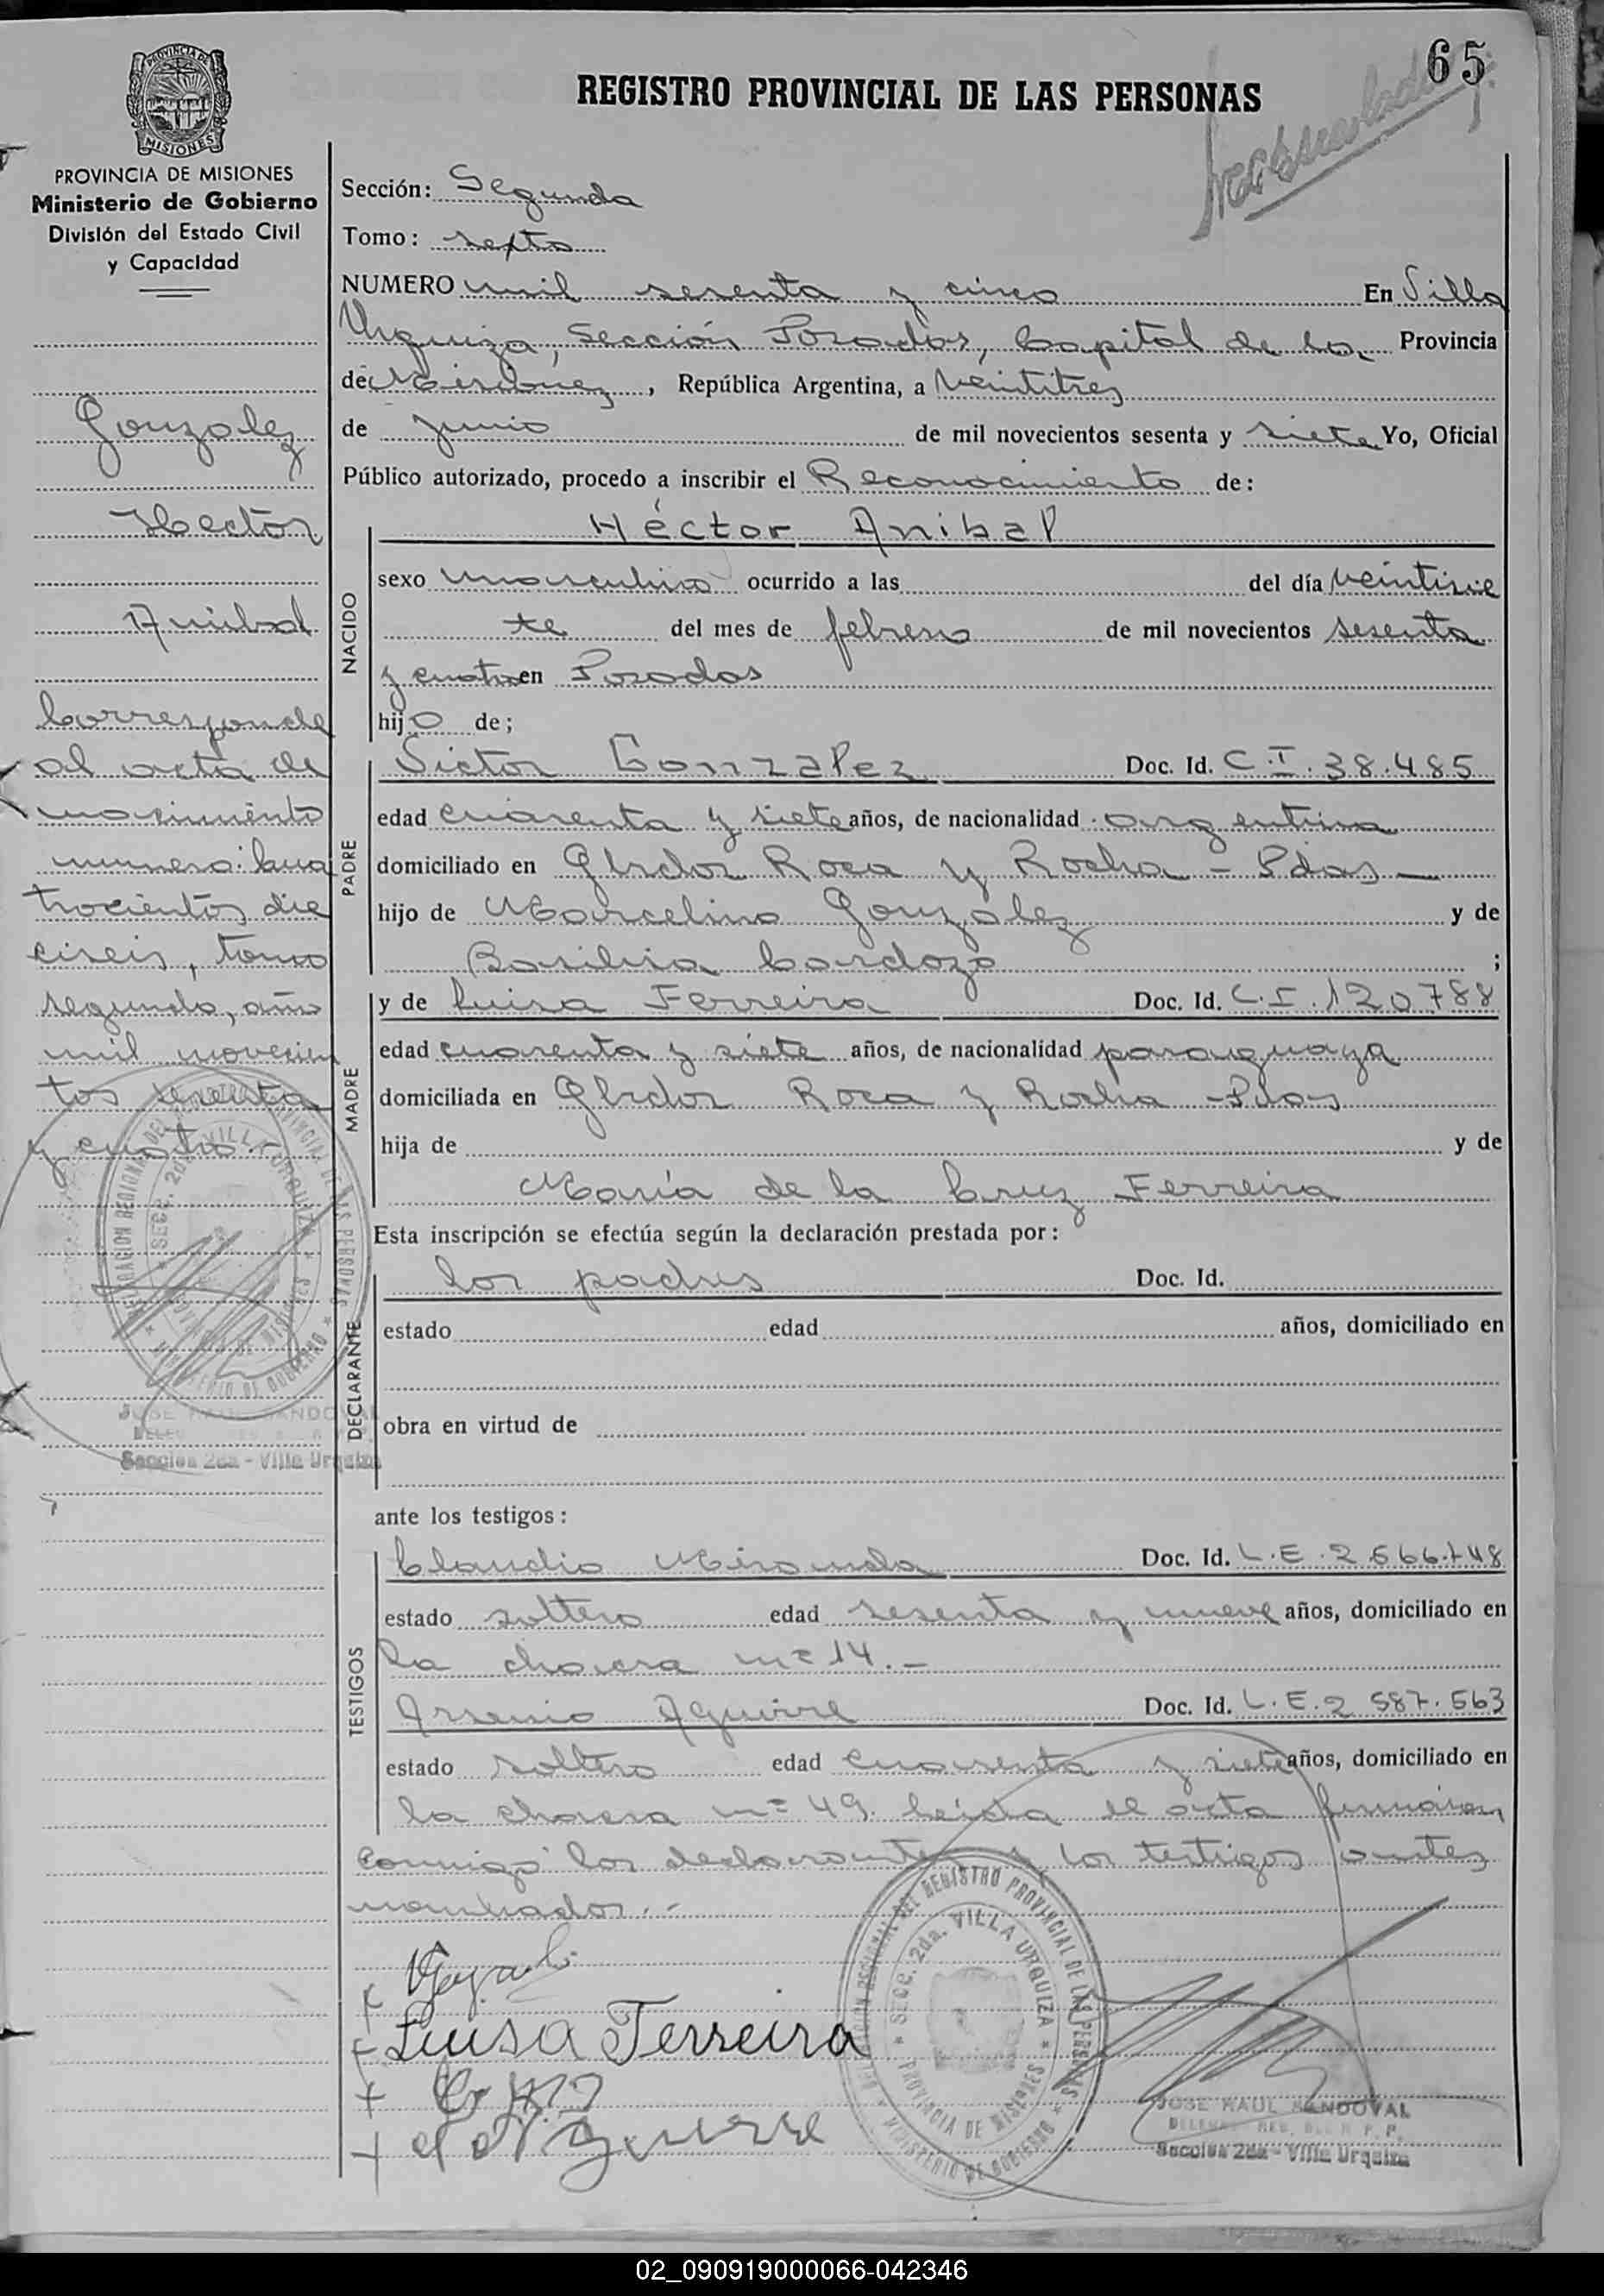 65
REGISTRO PROVINCIAL DE LAS PERSONAS
PROVINCIA DE MISIONES
MISIONES
PROVINCIA DE MISIONES
Ministerio de Gobierno
División del Estado Civil
y Capacidad
Gonzalez
Hector
Anibal
Corresponde
al acta de
nacimiento
numero: Cua
trocientos die
ciseis, tomo
segundo, año
mil novecien
tos sesenta
y cuatro.-
Sección: Segunda
Tomo: sexto
NUMERO mil sesenta y cinco En Villa
Urquiza, Sección Posadas, Capital de la Provincia
de Misiones, República Argentina, a veintitres
de junio de mil novecientos sesenta y siete Yo, Oficial
Público autorizado, procedo a inscribir el Reconocimiento de:
NACIDO
Héctor Anibal
sexo masculino ocurrido a las del día veintisie
te del mes de febrero de mil novecientos sesenta
y cuatro en Posadas
hijo de;
PADRE
Victor Gonzalez Doc. Id. C.I. 38.485
edad cuarenta y siete años, de nacionalidad argentina
domiciliado en Gbrdor Roca y Rocha - Pdas -
hijo de Marcelino Gonzalez y de
Basilia Cardozo ;
MADRE
y de Luisa Ferreira Doc. Id. C.I. 120.788
edad cuarenta y siete años, de nacionalidad paraguaya
domiciliada en Gbrdor Roca y Rocha - Pdas
hija de y de
María de la Cruz Ferreira
Esta inscripción se efectúa según la declaración prestada por:
DECLARANTE
los padres Doc. Id.
estado edad años, domiciliado en
obra en virtud de
ante los testigos:
TESTIGOS
Claudio Miranda Doc. Id. L.E. 2.566.748
estado soltero edad sesenta y nueve años, domiciliado en
la chacra nº 14.-
Arsenio Aguirre Doc. Id. L.E. 2 587.563
estado soltero edad cuarenta y siete años, domiciliado en
la chacra nº 49. Leída el acta firmaron
conmigo los declarantes y los testigos antes
nombrados.-
Luisa Ferreira
Aguirre
DELEGACION REGIONAL DEL REGISTRO PROVINCIAL DE LAS PERSONAS
SECC. 2da. VILLA URQUIZA
PROVINCIA DE MISIONES
MINISTERIO DE GOBIERNO
JOSE RAUL SANDOVAL
Seccion 2da - Villa Urquiza
DELEGACION REGIONAL DEL REGISTRO PROVINCIAL DE LAS PERSONAS
SECC. 2da. VILLA URQUIZA
PROVINCIA DE MISIONES
MINISTERIO DE GOBIERNO
JOSE RAUL SANDOVAL
Seccion 2da - Villa Urquiza
02_090919000066-042346